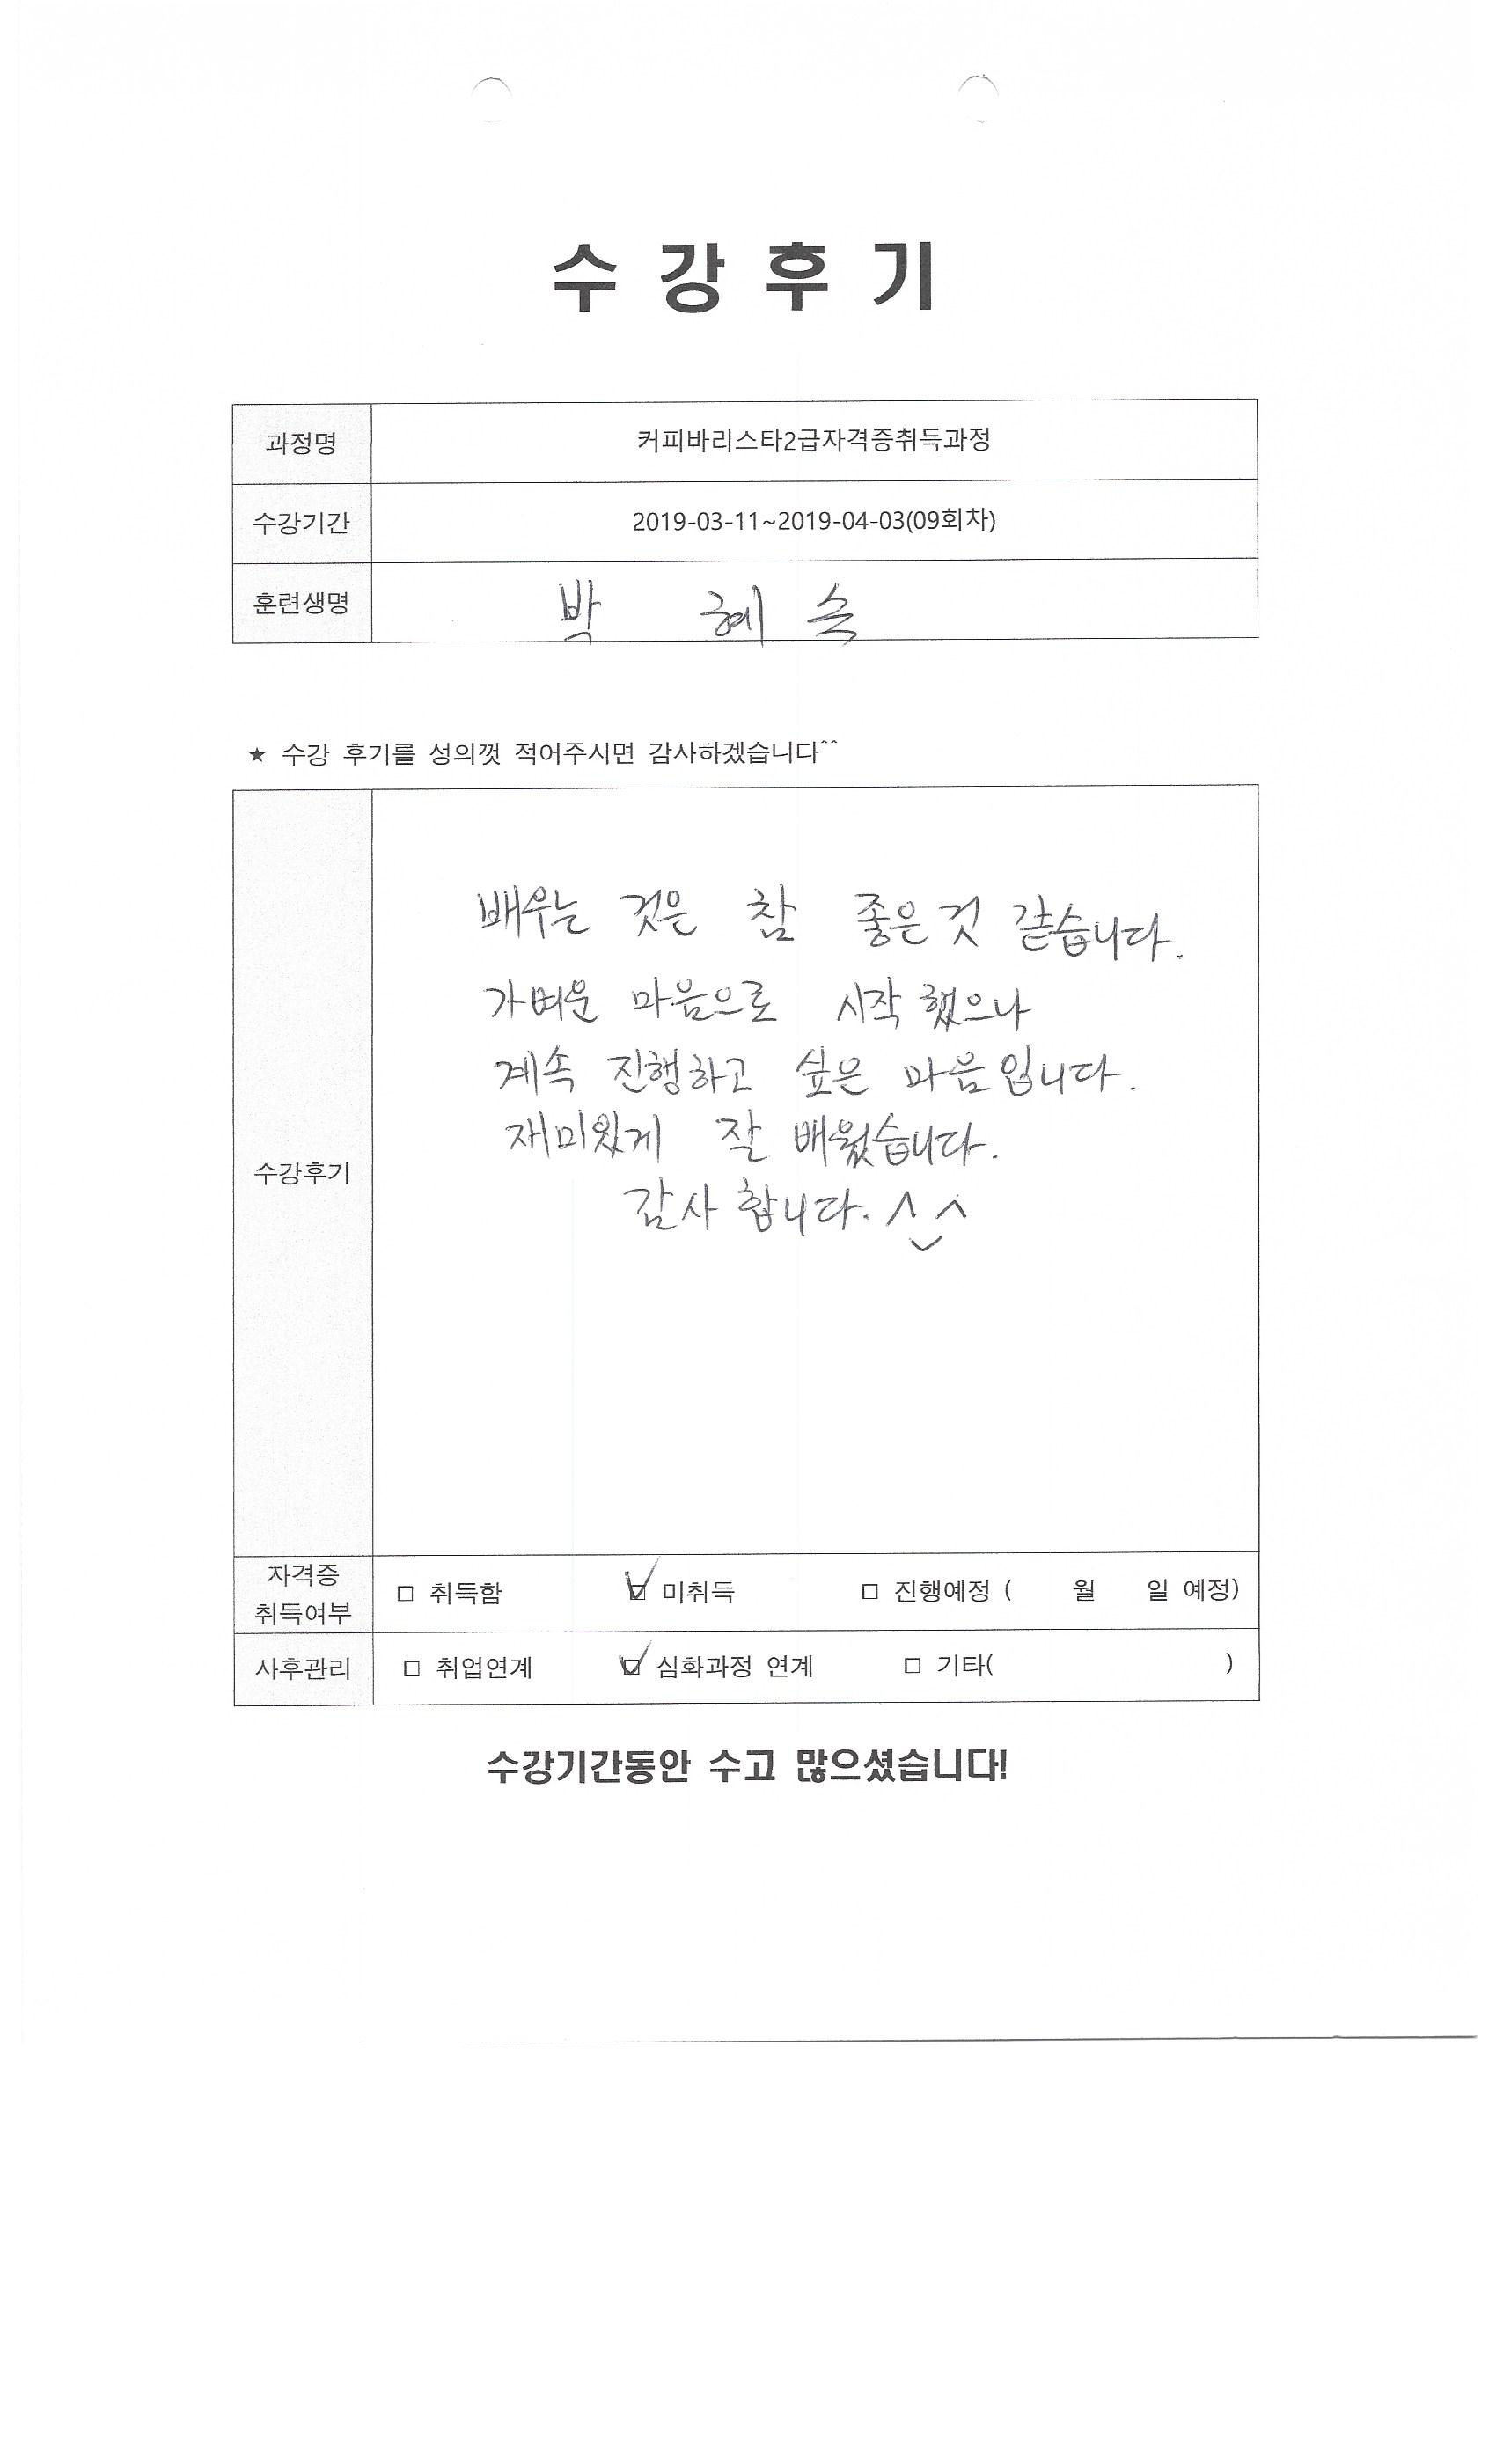 수 강 후 기
과정명 커피바리스타2급자격증취득과정
수강기간 2019-03-11~2019-04-03(09회차)
훈련생명 박 혜 숙
★ 수강 후기를 성의껏 적어주시면 감사하겠습니다^^
배우는 것은 참 좋은 것 같습니다.
가벼운 마음으로 시작 했으나
계속 진행하고 싶은 마음입니다.
재미있게 잘 배웠습니다.
수강후기
감사 합니다. ^^
자격증
취득여부 □ 취득함 ☑ 미취득 □ 진행예정 ( 월 일 예정)
사후관리 □ 취업연계 ☑ 심화과정 연계 □ 기타( )
수강기간동안 수고 많으셨습니다!